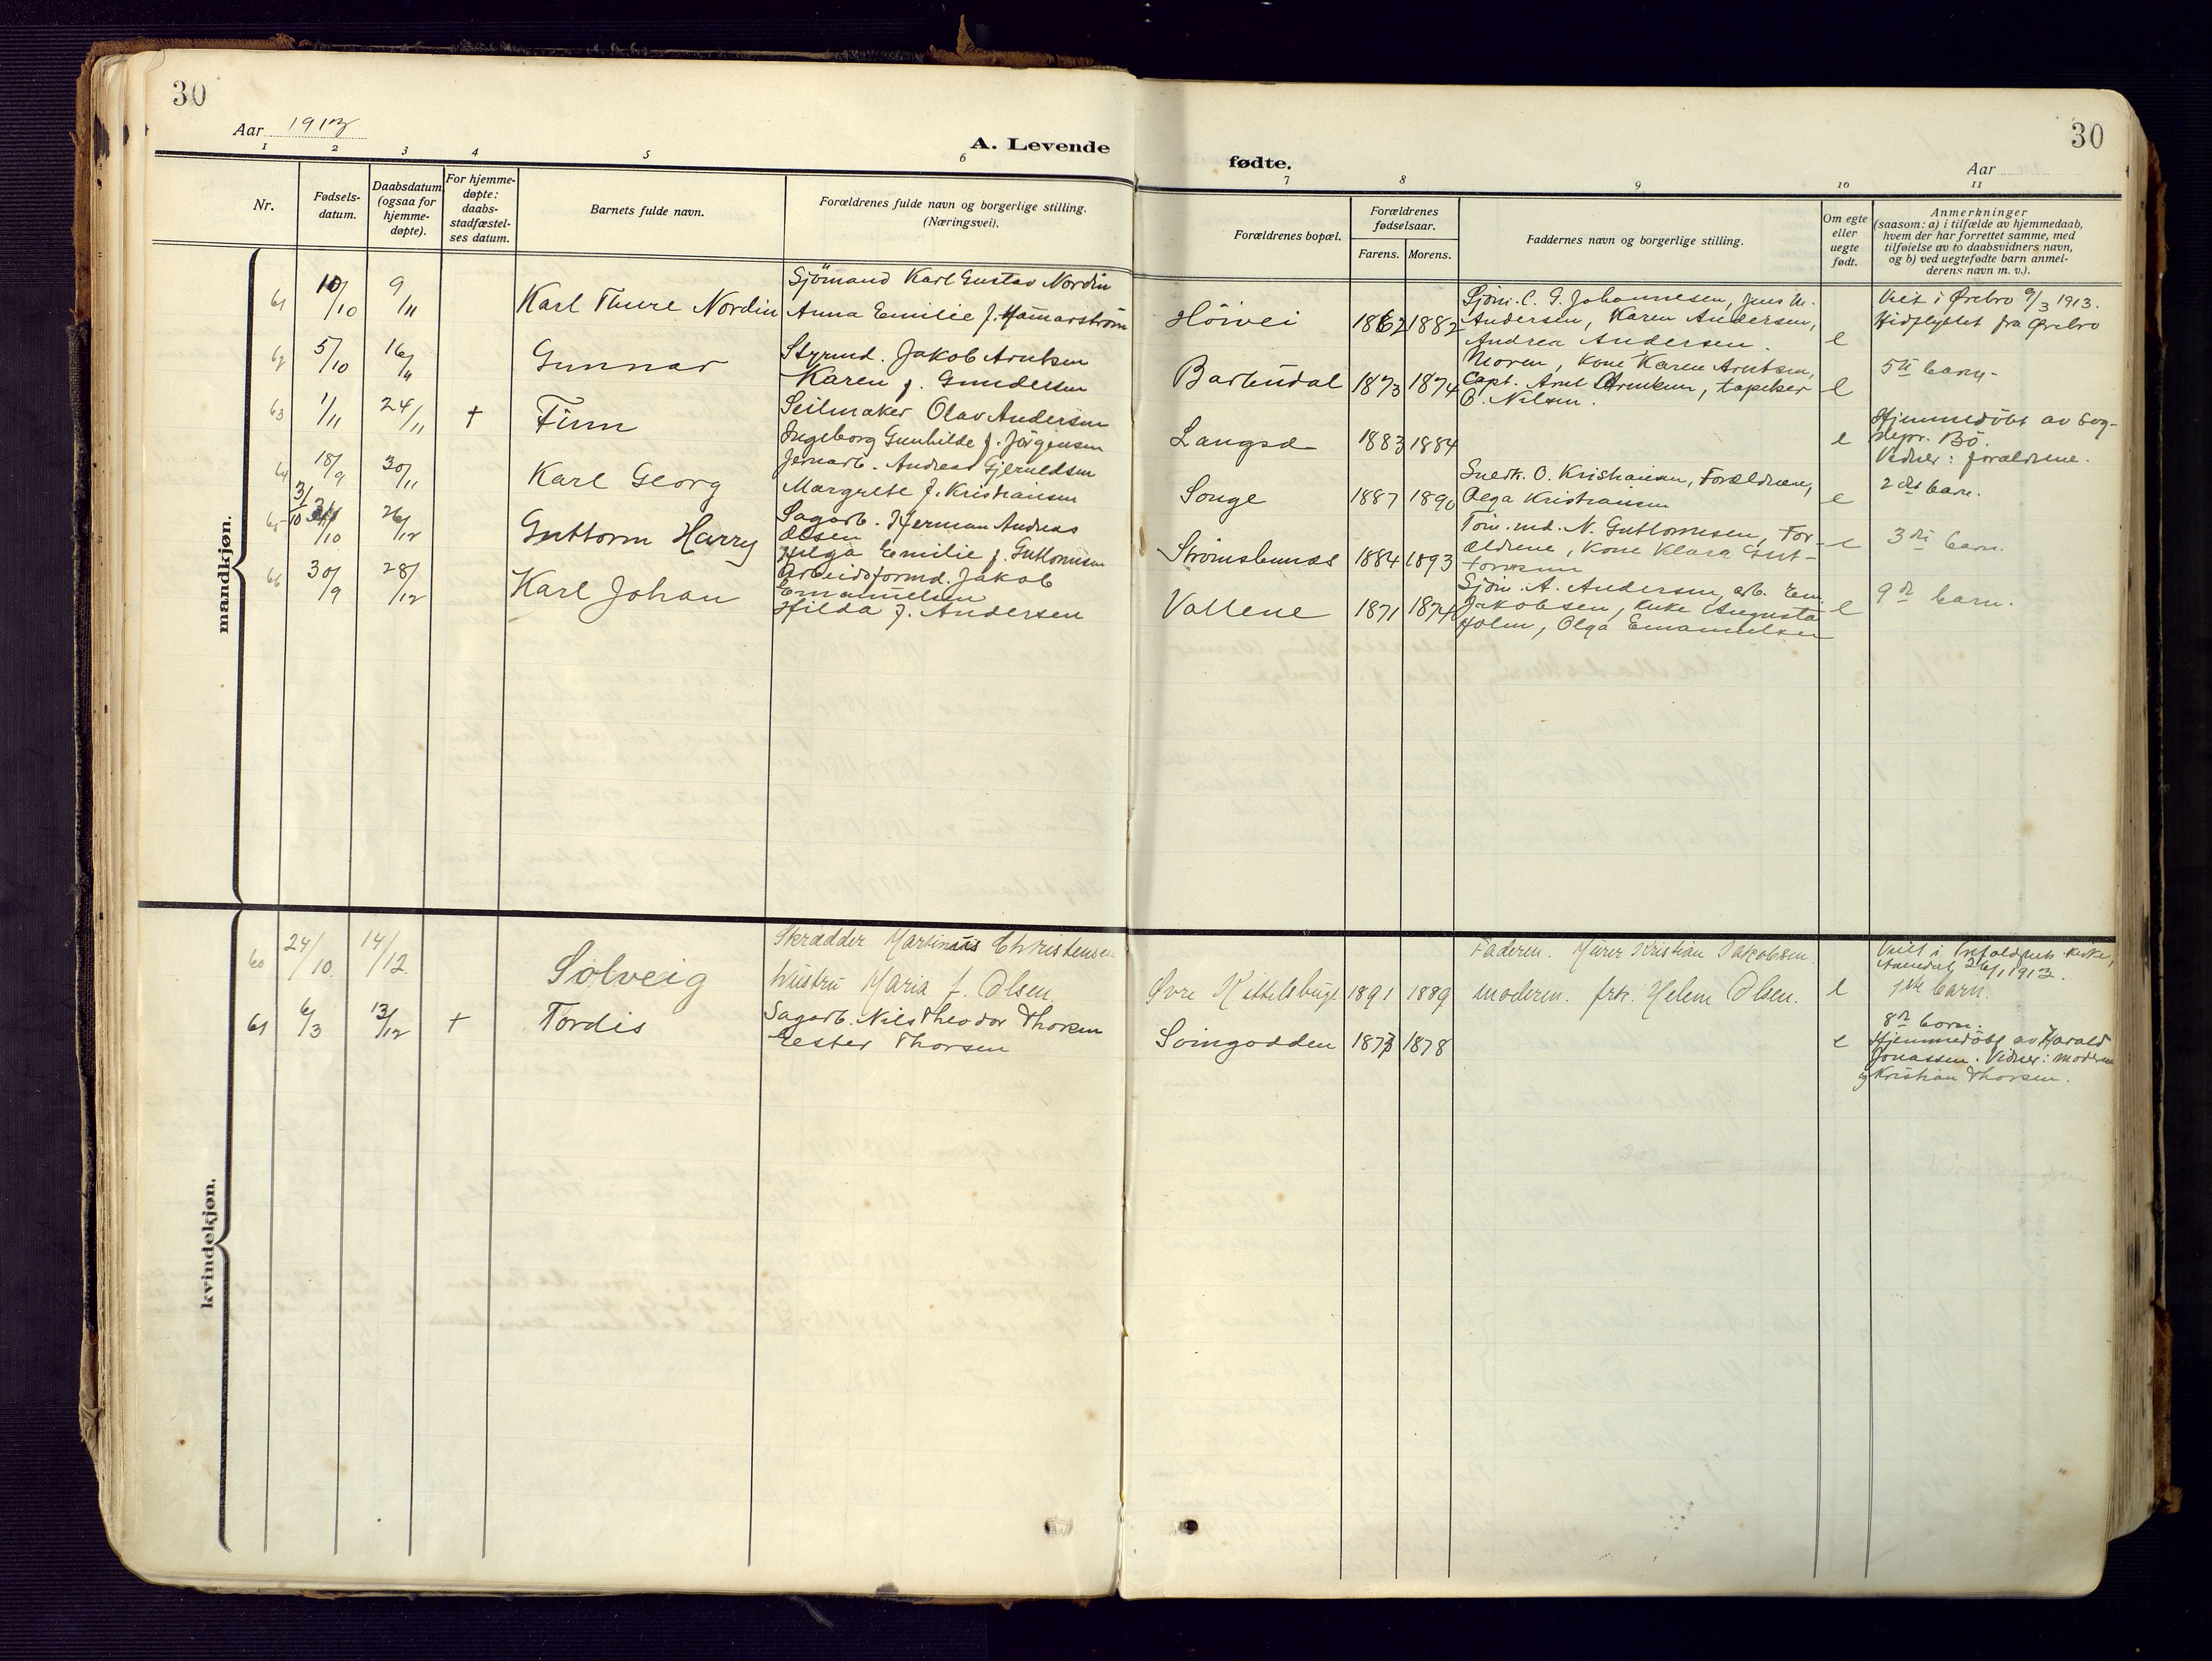 30
30
Aar 1913
A. Levende
fødte.
Aar
1 2 3 4 5 6 7 8 9 10 11
Nr.
Fødsels-
datum.
Daabsdatum
(ogsaa for
hjemme-
døpte).
For hjemme-
døpte:
daabs-
stadfæstel-
ses datum.
Barnets fulde navn.
Forældrenes fulde navn og borgerlige stilling.
(Næringsvei).
Forældrenes bopæl.
Forældrenes
fødselsaar.
Farens. Morens.
Faddernes navn og borgerlige stilling.
Om egte
eller
uegte
født.
Anmerkninger
(saasom: a) i tilfælde av hjemmedaab,
hvem der har forrettet samme, med
tilføielse av to daabsvidners navn,
og b) ved uegtefødte barn anmel-
derens navn m. v.).
mandkjøn.
61 10/10 9/11 Karl Thure Nordin
Sjömand Karl Gustav Nordin
Anna Emilie f. Hamarström
Höivei 1862 1882
Sjöm. C. G. Johannesen, Jens M.
Andersen, Karen Andersen,
Andrea Andersen.
e
Viet i Ørebro 9/3 1913.
Hidflyttet fra Ørebro
62 5/10 16/11 Gunnar
Styrmd. Jakob Arntsen
Karen f. Gundersen
Barbudal 1873 1874
Moren, kone Karen Arntsen,
Capt. Arnt Arntsen,
Nilsen.
e
5te barn.
63 1/11 24/11 + Finn
Seilmaker Olav Andersen
Ingeborg Gunhilde f. Jörgensen
Langsæ 1883 1884
e
Hjemmedöbt av sog-
nepr. Bö.
Vidner: forældrene.
64 18/9 30/11 Karl Georg
Jernarb. Andreas Gjeruldsen
Margrete f. Kristiansen
Songe 1887 1890
Snedk. O. Kristiansen, Forældrene,
Olga Kristiansen
e
2det barn.
65 31/10 26/12 Guttorm Harry
Sagarb. Herman Andreas
Olsen
Helga Emilie f. Guttormsen
Strömsbunes 1884 1893
Töm.md. N. Guttormsen, For-
ældrene, Kone Klara Gut-
tormsen
e
3die barn.
66 30/9 28/12 Karl Johan
Arbeidsformd. Jakob
Emanuelsen
Hilda f. Andersen
Vollene 1871 1874
Sjöm. A. Andersen, arb. Em.
Jakobsen, enke Augusta
Holm, Olga Emanuelsen
e
9de barn.
kvindekjøn.
60 24/10. 14/12. Solveig
Skrædder Martinius Christensen
hustru Maria f. Olsen.
Øvre Kittelsbugt 1891 1889
Faderen. Murer Kristian Jakobsen.
moderen. frk. Helene Olsen.
e
Viet i Trefoldigheds kirke,
Arendal 26/1 1913.
1ste barn.
61 6/3 13/12 + Tordis
Sagarb. Nils Theodor Thorsen
Ester Thorsen
Svingodden 1873 1878
e
8de barn.
Hjemmedöbt av Harald
Jonassen. Vidner: moderen
og Kristian Thorsen.